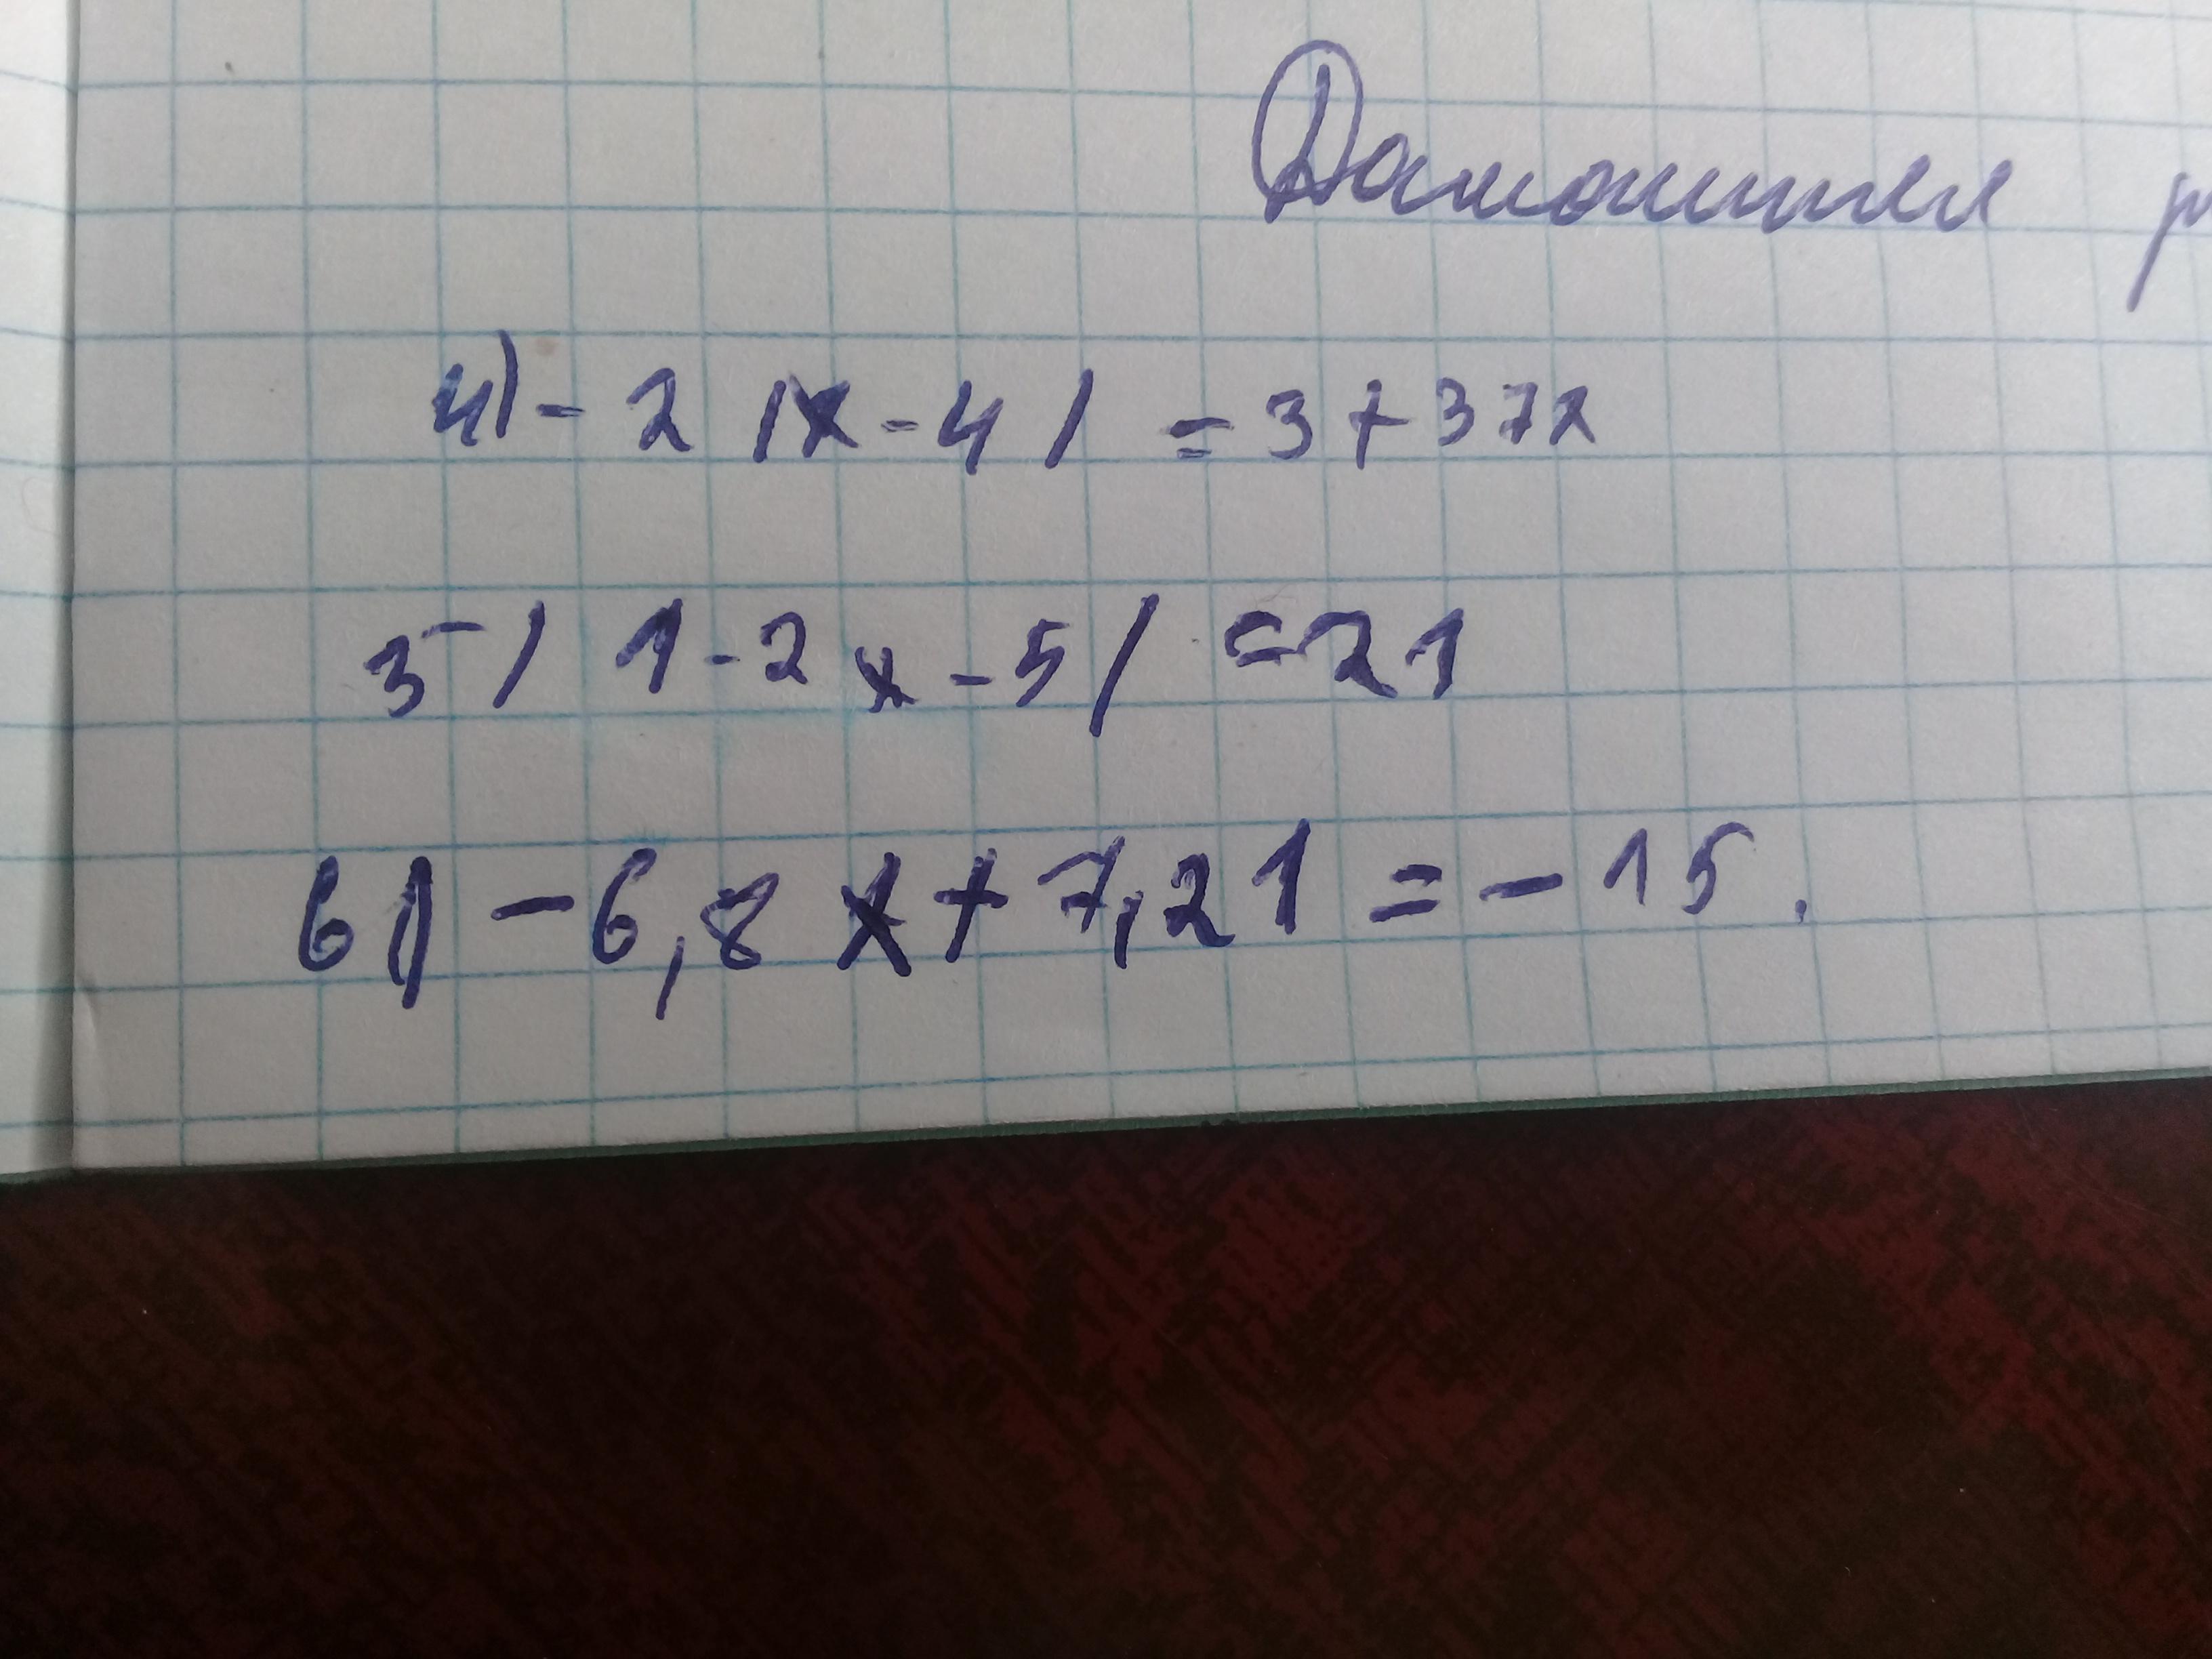 Домашняя
4) - 2 |x - 4| = 3 + 37x
5) 1 - 2x - 5 | = 21
6) - 6,8x + 7,21 = - 15.